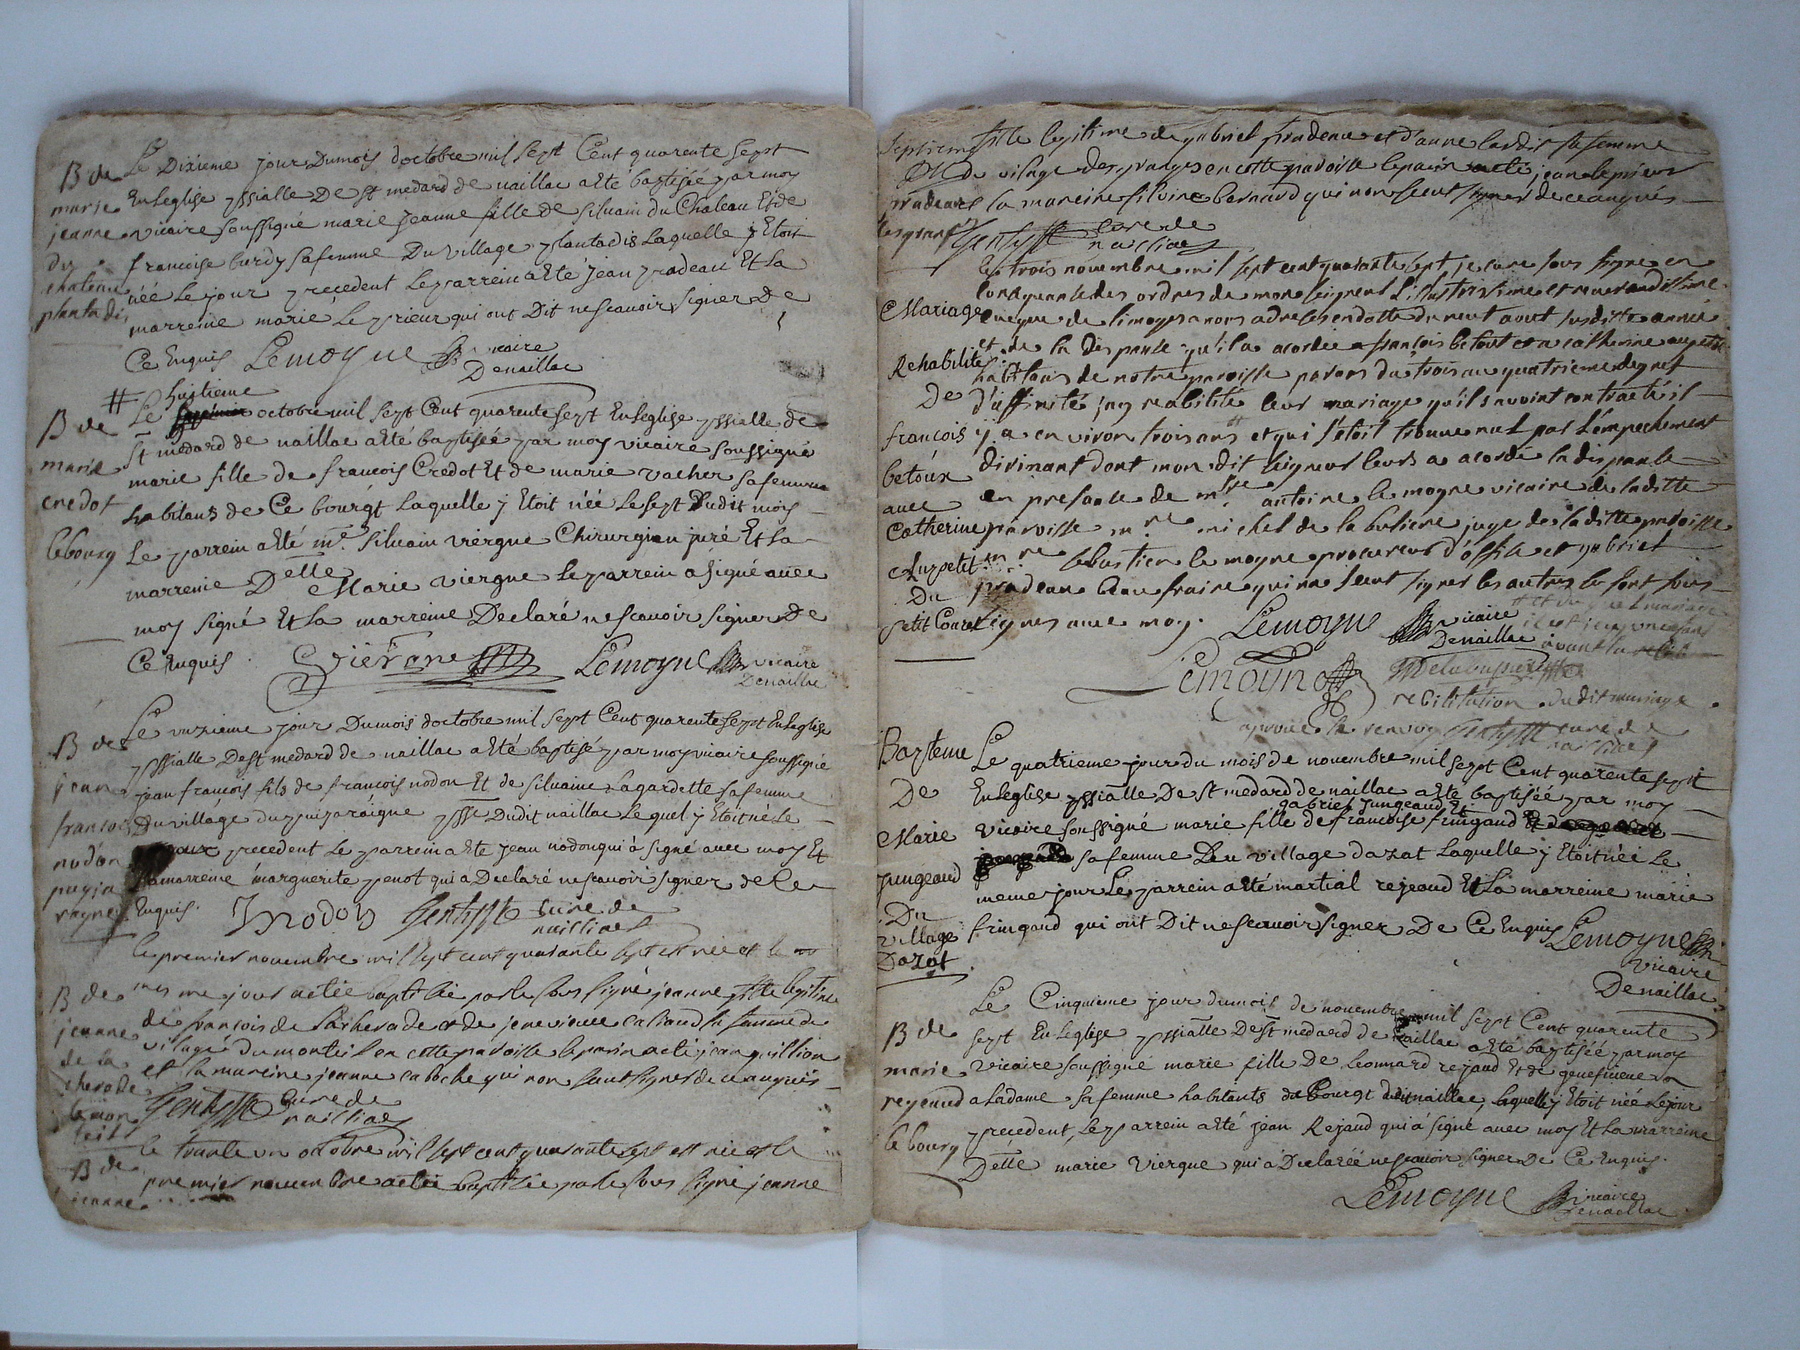 B de
marie
jeanne
du
chateau
plantadi
Le Dixieme jour Dumois doctobre mil sept Cent quarente sept
En Leglise pssialle De st medard de naillac a Eté baptisée par moy
vicaire soussigné marie jeanne fille de siluain du Chateau Et de
francoise burdy sa femme Du village plantadis Laquelle y Etoit
née Le jour precedent Le parrein a Eté jean pradeau Et La
marreine marie Le prieur qui ont Dit ne scauoir signer De
Ce Enquis Lemoyne vicaire
Denaillac
# huitieme
B de
marie
credot
le bourg
Le octobre mil sept Cent quarente sept En Leglise pssialle de
st medard de naillac a Eté baptisée par moy vicaire soussigné
marie fille de francois Credot Et de marie vacher sa femme
habitans de Ce bourgt Laquelle y Etoit née Le sept Dudit mois
Le parrein a Eté mr. siluain viergne Chirurgien juré Et La
marreine Delle Marie viergne Le parrein a signé auec
moy signé Et La marreine Declaré ne scauoir signer De
Ce Enquis. Viergne Lemoyne vicaire
Denaillac
B de
jean
francois
nodon
puyja
raigne
Le unzieme jour Dumois doctobre mil sept Cent quarente sept En Leglise
pssialle De st medard de naillac a Eté baptisé par moy vicaire soussigné
jean francois fils de francois nodon Et de siluaine Lagardette sa femme
Du village du puijaraigne psse Dudit naillac Le quel y Etoit né Le
jour precedent Le parrein a Eté jean nodon qui à signé auec moy Et
La marreine marguerite penot qui a Declaré ne scauoir signer de Ce
Enquis. Jnodon Gentysse cure de
nailliac
B de
jeanne
de la
cherade
le mon
teill
le premier nouembre mil sept cent quarante sept est née et le
mesme jour a etée baptisée par le sous signé jeanne fille legitime
de francois de Lacherade et de jeneuieue cabaud sa femme du
vilage du monteil en cette paroisse le parin a eté jean quillion
et la mareine jeanne caboche qui non sceut signer de ce anquis
Gentysse cure de
nailliac
B de
jeanne
le trante un octobre mil sept cent quarante sept est née et le
premier nouembre a etée baptisée par le sous signé jeanne
pradeau
les granges
fille legitime de gabriel pradeau et d'anne lardis sa femme
Du vilage des granges en cette paroisse le parin a eté jean le prieur
la mareine siluine bernard qui non sceut signer de ce anquis
Gentysse cure de
nailliac
Mariage
Rehabilité
De
francois
betoux
auec
Catherine
Aupetit
Du
petit Couret
Le trois nouembre mil sept cent quarante sept je cure sous signe en
consequance des ordres de monseigneur L'illustrissime et reuerandissime
eueque de limoges a nous adressés en datte du neuf aout susditte année
et de la dispanse qu'il a acordée a francois betout et a catherine aupetit
habitans de notre paroisse parans du trois au quatrieme degret
d'affinité j'ay reabilité leur mariage qu'ils auoint contracté il
y a enuiron trois ans et qui s'étoit trouué nul par l'empechement
dirimant dont mon dit seigneur leurs a acordé la dispanse
en presance de mre antoine le moyne vicaire de laditte
paroisse mre michel de la busiere juge de laditte paroisse
mre sebastien le moyne procureur d'office et gabriel
pradeau beau fraire qui na sceut signer les autres se sont sous
signes auec moy. Lemoyne vicaire
Denaillac
Lemoyne Delabussiere
auant la
rebilitation dudit mariage
aprouué le renuoy Gentysse cure de
nailliac
Bapteme
De
Marie
jungeaud
Du
village
Dazat
Le quatrieme jour du mois de nouembre mil sept Cent quarente sept
En Leglise pssialle De st medard de naillac a Eté baptisée par moy
gabriel jungeaud Et
vicaire soussigné marie fille de francoise fringaud
sa femme Du village dazat Laquelle y Etoit née Le
meme jour Le parrein a Eté martial rejeaud Et La marreine marie
fringaud qui ont Dit ne scauoir signer De Ce Enquis Lemoyne
vicaire
Denaillac
B de
marie
rejeaud
le bourg
Le Cinquieme jour dumois de nouembre mil sept Cent quarente
sept En Leglise pssialle De st medard de naillac a Eté baptisée par moy
vicaire soussigné marie fille De Leonnard rejaud Et de geneficiene
aladame sa femme habitants du Bourgt dudit naillac, laquelle y Etoit née Le jour
precedent, Le parrein a Eté jean Rejaud qui à signé auec moy Et La marreine
Delle marie viergne qui a Declarée ne scauoir signer De Ce Enquis.
Lemoyne vicaire
Denaillac